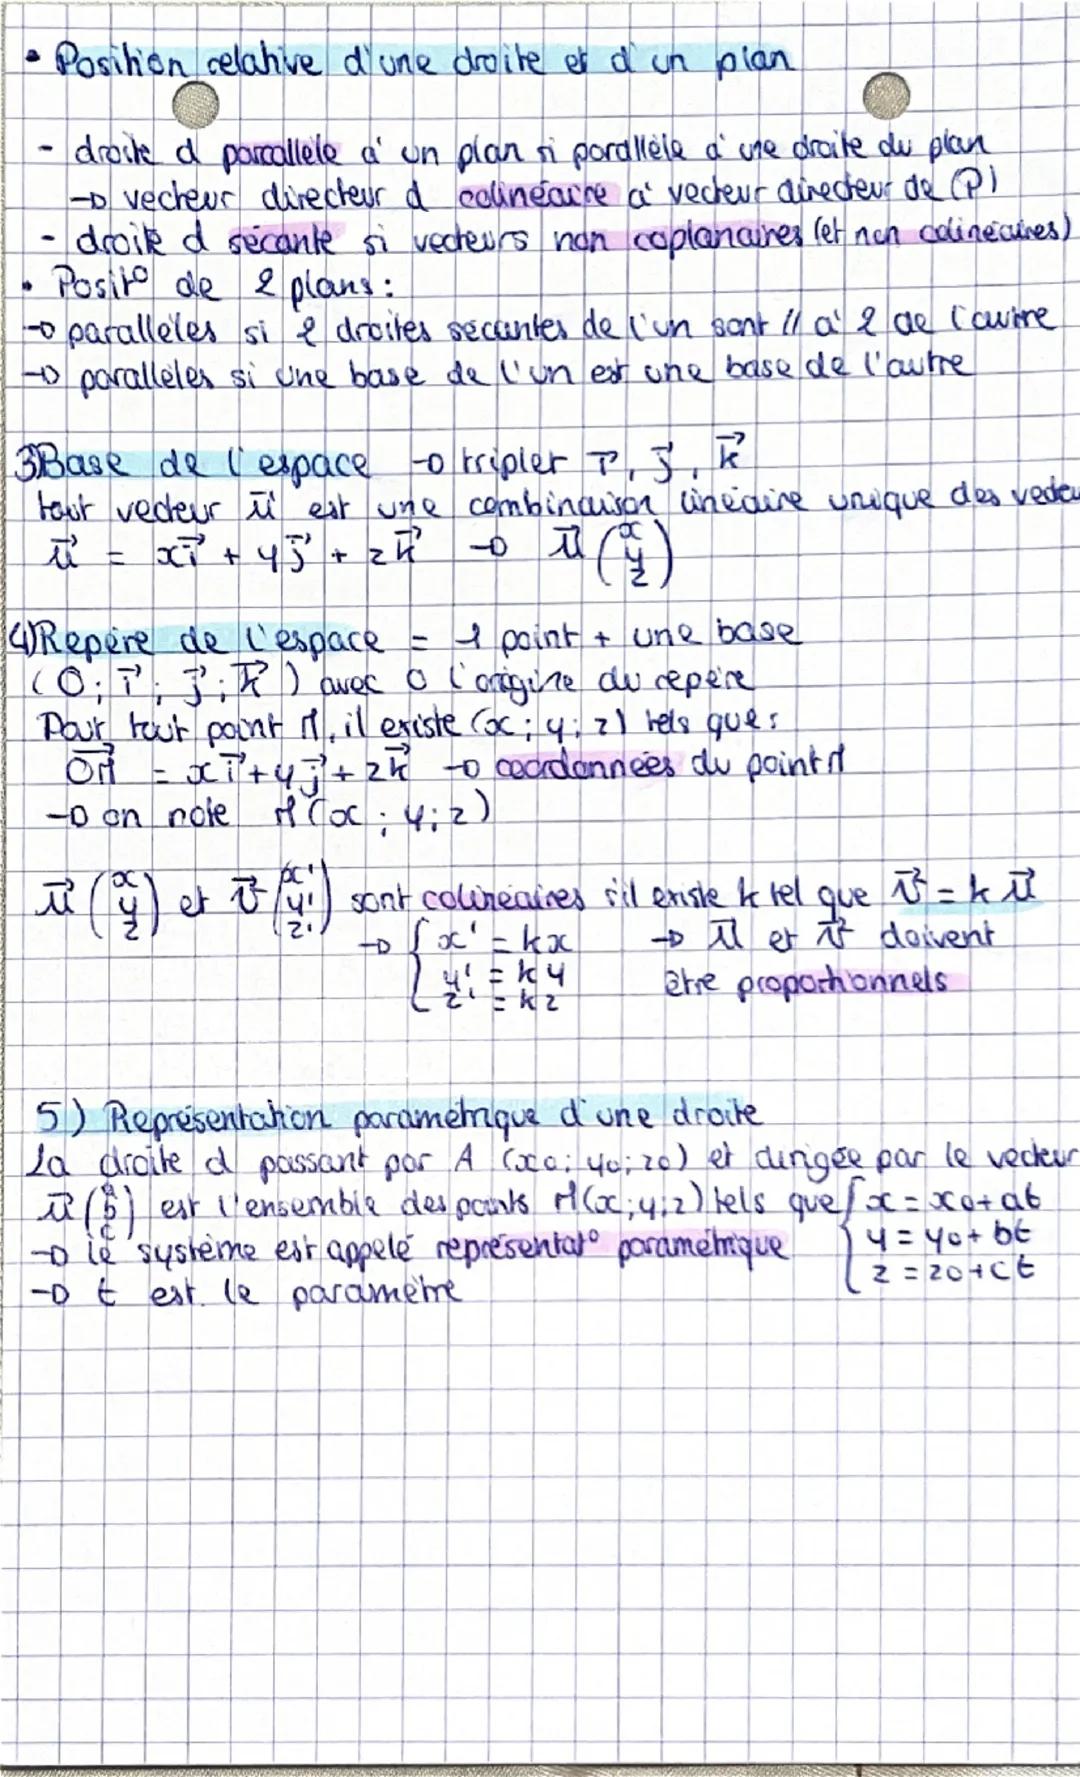 • Position relative d'une droite et d'un plan
- droite d parallèle à un plan si parallèle à une droite du plan
→ vecteur directeur d colinéaire à vecteur directeur de (P)
- droite d sécante si vecteurs non coplanaires (et non colinéaires)
• Posit° de 2 plans :
→ parallèles si 2 droites sécantes de l'un sont // à 2 de l'autre
→ parallèles si une base de l'un est une base de l'autre
3) Base de l'espace → triplet i⃗, j⃗, k⃗
tout vecteur u⃗ est une combinaison linéaire unique des vecteu
u⃗ = xi⃗ + yj⃗ + zk⃗ → u⃗ (x y z)
4) Repère de l'espace = 1 point + une base
(O; i⃗; j⃗; k⃗) avec O l'origine du repère
Pour tout point M, il existe (x; y; z) tels que:
OM⃗ = xi⃗ + yj⃗ + zk⃗ → coordonnées du point M
→ on note M(x; y; z)
u⃗ (x y z) et v⃗ (x' y' z') sont colinéaires s'il existe k tel que v⃗ = k u⃗
→ { x' = kx → u⃗ et v⃗ doivent
y' = ky être proportionnels
z' = kz
5) Représentation paramétrique d'une droite
La droite d passant par A (x0; y0; z0) et dirigée par le vecteur
u⃗ (a b c) est l'ensemble des points M(x; y; z) tels que { x = x0 + at
→ le système est appelé représentat° paramétrique y = y0 + bt
→ t est le paramètre z = z0 + ct